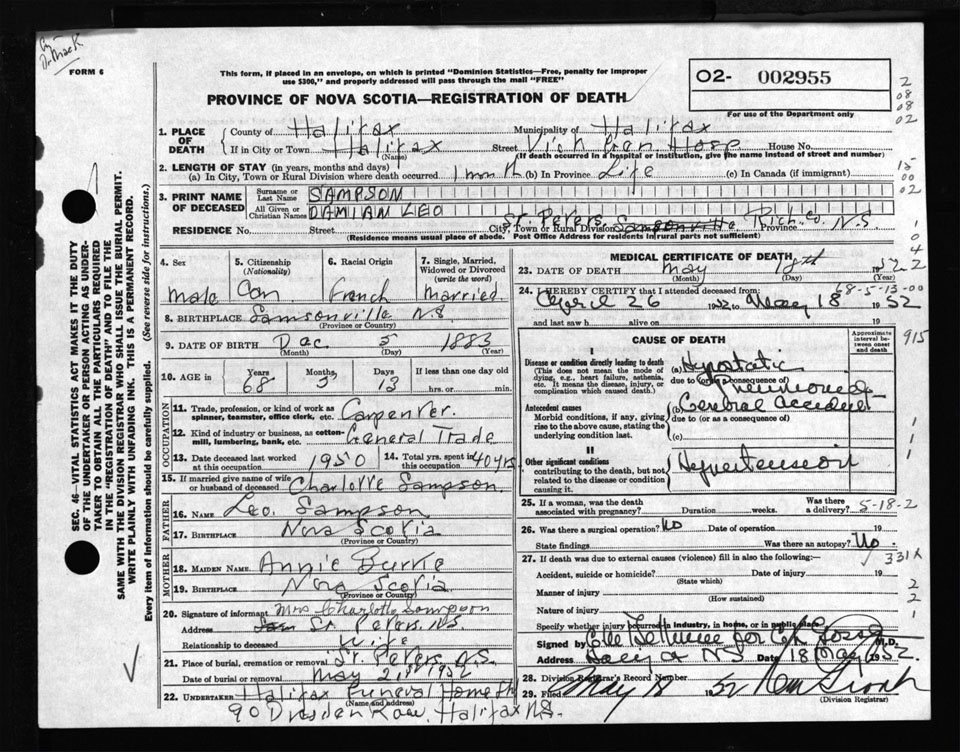 By
Dr Mack
FORM 6
This form, if placed in an envelope, on which is printed "Dominion Statistics—Free, penalty for improper
use $300," and properly addressed will pass through the mail "FREE"
O2- 002955
For use of the Department only
PROVINCE OF NOVA SCOTIA—REGISTRATION OF DEATH
1. PLACE OF DEATH
County of Halifax Municipality of Halifax
If in City or Town Halifax Street Vict Gen Hosp House No.
(Name) (If death occurred in a hospital or institution, give the name instead of street and number)
2. LENGTH OF STAY (in years, months and days)
(a) In City, Town or Rural Division where death occurred 1 month (b) In Province Life (c) In Canada (if immigrant)
3. PRINT NAME OF DECEASED
Surname or Last Name SAMPSON
All Given or Christian Names DAMIAN LEO
St. Peters Rich. Co. N.S.
RESIDENCE No. Street City, Town or Rural Division Samsonville Province
(Residence means usual place of abode. Post Office Address for residents in rural parts not sufficient)
4. Sex Male
5. Citizenship (Nationality) Can
6. Racial Origin French
7. Single, Married, Widowed or Divorced (write the word) Married
8. BIRTHPLACE Samsonville N.S.
(Province or Country)
9. DATE OF BIRTH Dec 5 1883
(Month) (Day) (Year)
10. AGE in Years Months Days If less than one day old
68 5 13 hrs. or min.
OCCUPATION
11. Trade, profession, or kind of work as spinner, teamster, office clerk, etc. Carpenter.
12. Kind of industry or business, as cotton-mill, lumbering, bank, etc. General Trade
13. Date deceased last worked at this occupation 1950
14. Total yrs. spent in this occupation 40 yrs
15. If married give name of wife or husband of deceased Charlotte Sampson
FATHER
16. NAME Leo. Sampson
17. BIRTHPLACE Nova Scotia
(Province or Country)
MOTHER
18. MAIDEN NAME Annie Burke
19. BIRTHPLACE Nova Scotia
(Province or Country)
20. Signature of informant Mrs Charlotte Sampson
Address St. Peters. N.S.
Relationship to deceased Wife
21. Place of burial, cremation or removal St. Peters N.S.
Date of burial or removal May 21st 1952
22. UNDERTAKER Halifax Funeral Home
(Name and address)
90 Dresden Row, Halifax N.S.
MEDICAL CERTIFICATE OF DEATH
23. DATE OF DEATH May 18th 1952
(Month) (Day) (Year)
24. I HEREBY CERTIFY that I attended deceased from:
68-5-13-00
April 26 1952 to May 18 1952
and last saw h alive on 19
CAUSE OF DEATH
Approximate interval between onset and death
I
Disease or condition directly leading to death
(This does not mean the mode of dying, e.g., heart failure, asthenia, etc. It means the disease, injury, or complication which caused death.)
(a) Hypostatic Pneumonia
due to (or as a consequence of)
Antecedent causes
Morbid conditions, if any, giving rise to the above cause, stating the underlying condition last.
(b) Cerebral Accident
due to (or as a consequence of)
(c)
II
Other significant conditions
contributing to the death, but not related to the disease or condition causing it.
Hypertension
25. If a woman, was the death associated with pregnancy? Duration weeks. Was there a delivery?
5-18-2
26. Was there a surgical operation? No Date of operation 19
State findings Was there an autopsy? No
27. If death was due to external causes (violence) fill in also the following:—
Accident, suicide or homicide? Date of injury 19
(State which)
Manner of injury
(How sustained)
Nature of injury
Specify whether injury occurred in industry, in home, or in public place
Signed by M.D.
Address Halifax NS Date 18 May 1952
28. Division Registrar's Record Number
29. Filed May 18 1952
(Division Registrar)
2
08
08
02
15
00
02
1
0
4
2
915
1
1
1
331X
2
2
1
SEC. 46—VITAL STATISTICS ACT MAKES IT THE DUTY
OF THE UNDERTAKER OR PERSON ACTING AS UNDER-
TAKER TO OBTAIN ALL THE PARTICULARS REQUIRED
IN THE "REGISTRATION OF DEATH" AND TO FILE THE
SAME WITH THE DIVISION REGISTRAR WHO SHALL ISSUE THE BURIAL PERMIT.
WRITE PLAINLY WITH UNFADING INK. THIS IS A PERMANENT RECORD.
Every item of information should be carefully supplied. (See reverse side for instructions.)